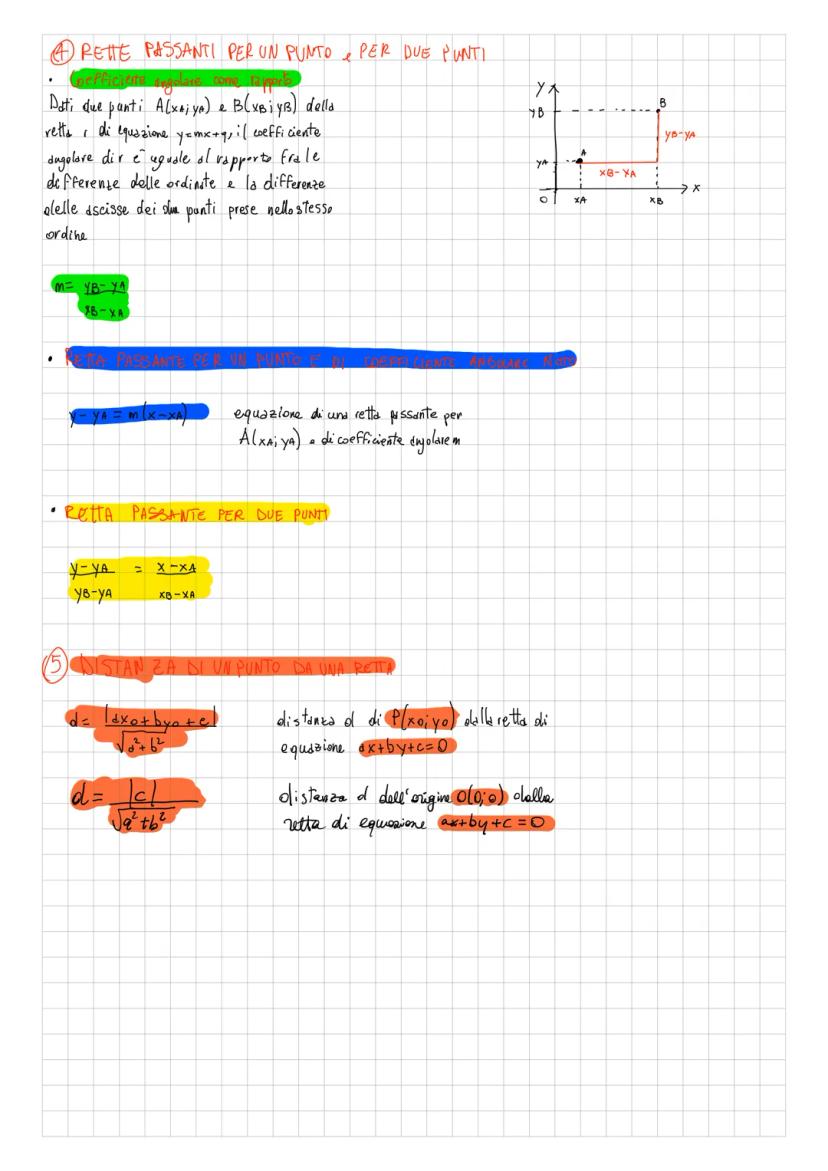 4 RETTE PASSANTI PER UN PUNTO e PER DUE PUNTI
• Coefficiente angolare come rapporto
Dati due punti A(xA; yA) e B(xB; yB) della
retta r di equazione y=mx+q, il coefficiente
angolare di r è uguale al rapporto fra le
differenze delle ordinate e la differenze
delle ascisse dei due punti prese nello stesso
ordine
y
yB
B
yB-yA
yA
A
xB-xA
O
xA
xB
x
m= yB-yA
xB-xA
• RETTA PASSANTE PER UN PUNTO E DI COEFFICIENTE ANGOLARE NOTO
y-yA = m(x-xA)
equazione di una retta passante per
A(xA; yA) e di coefficiente angolare m
• RETTA PASSANTE PER DUE PUNTI
y-yA = x-xA
yB-yA xB-xA
5 DISTANZA DI UN PUNTO DA UNA RETTA
d= |ax0+by0+c|
√a²+b²
distanza d di P(x0; y0) dalla retta di
equazione ax+by+c=0
d= |c|
√a²+b²
distanza d dell'origine O(0; 0) dalla
retta di equazione ax+by+c=0